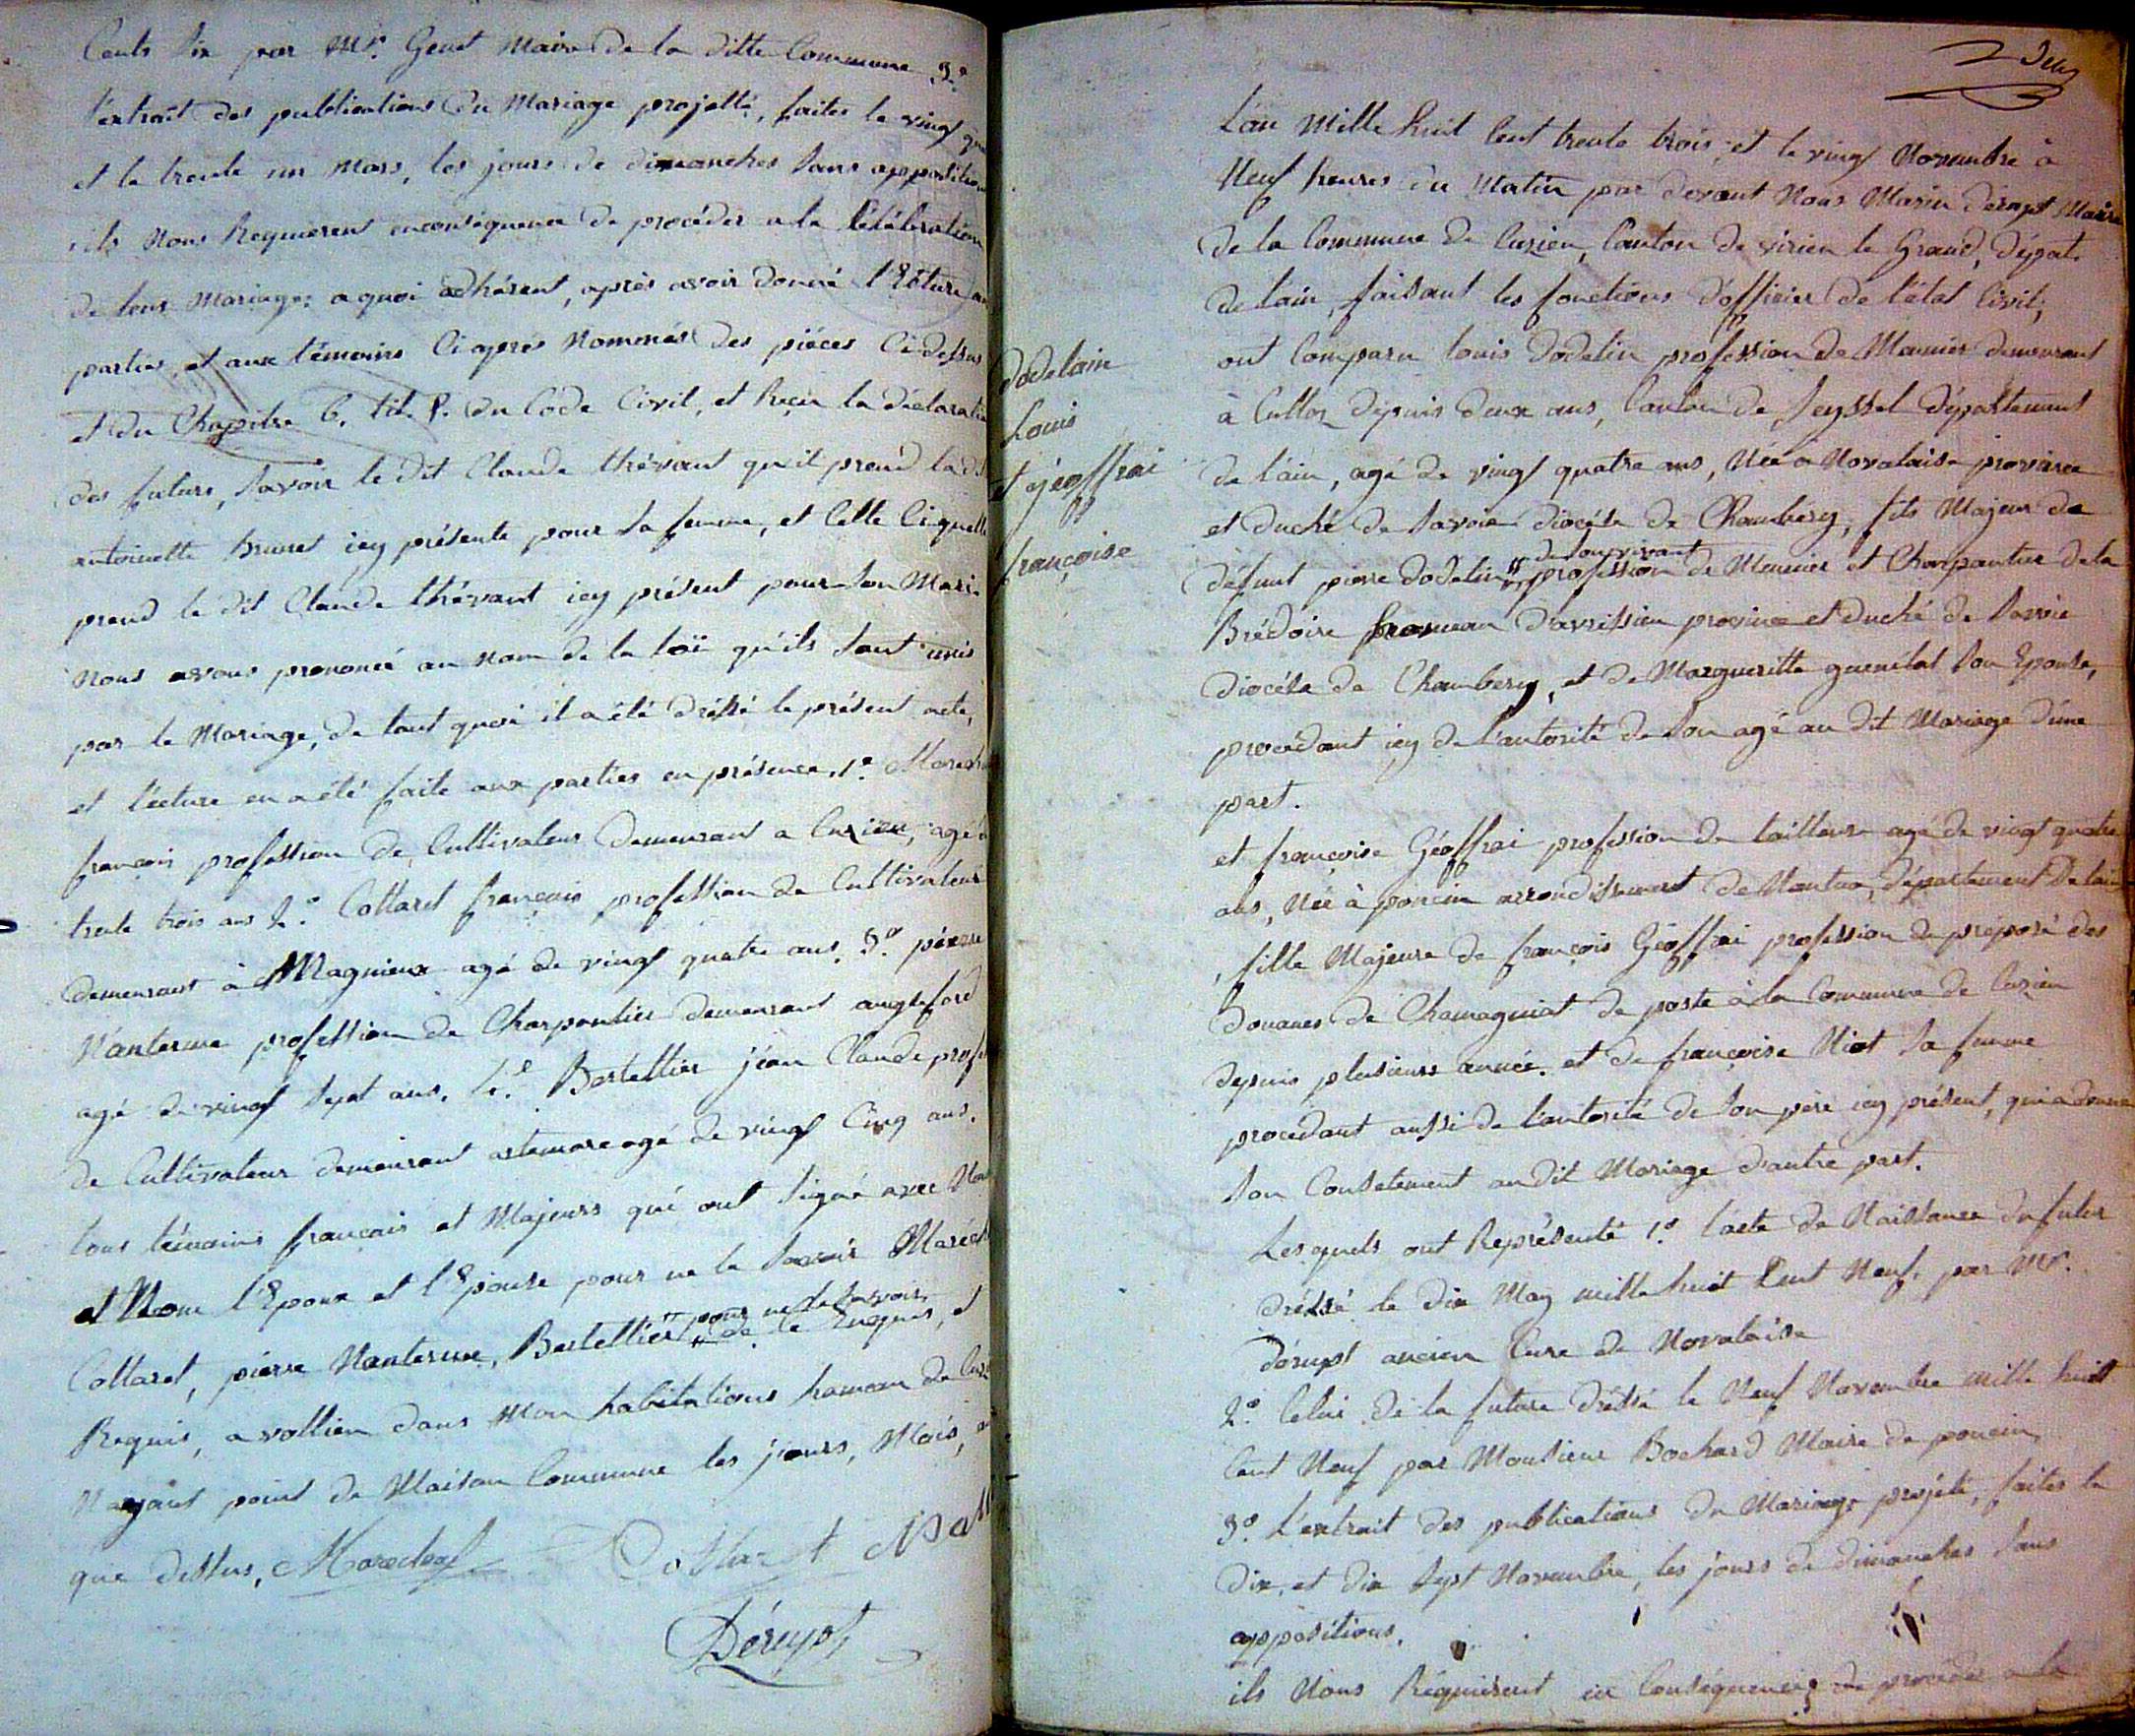 Cents dix par Mr. Genet Maire de la ditte Commune 3.°
l'extrait des publications du Mariage projetté, faites le vingt
et le trente un Mars, les jours de dimanches sans opposition
ils Nous Requierent enconséquence de procéder a la Célébration
de leur Mariage, a quoi adhérent, après avoir donné l'Ecture
parties, et aux témoins Ci après Nommés des piéces Ci dessus
et du Chapitre 6. tit. P. du Code Civil, et Reçu la déclaration
des futurs, Savoir le dit Claude thévant qu'il prend la dt
antoinette Brunet icy présente pour sa femme, et Celle Ciquelle
prend le dit Claude thévant icy présent pour son Mari
Nous avons prononcé au nom de la loi qu'ils sont unis
par le Mariage, de tout quoi il a été dréssé le présent acte,
et l'écture en a été faite aux parties en présence, 1.°
françois profession de Cultivateur demeurant a Cuzieu, agé
trente trois ans 2.° Cottaret françois profession de Cultivateur
demeurant à Magnieux agé de vingt quatre ans, 3.° piérre
Nanterme profession de Charpentier demeurant angleford
agé de vingt Sept ans, 4.e Bertellier jéan Claude profes
de Cultivateur demeurant artemare agé de vingt Cinq ans.
tous témoins français et Majeurs qui ont signé avec Nous
et Nom l'Epoux et l'Epouse pour ne le savoir Maréch
Cottaret, piérre Nanterme, Bertellier pour ne le savoir de ce Enquis, et
Requis, a vollien dans Mon habitations hameau de Cuz
Nayant point de Maison Commune les jours, Mois,
que dessus. Marechal Cottaret
Déruyst
Dodelain
Louis
et géoffrai
françoise
2 Deux
L'an Mille huit Cent trente trois, et le vingt Novembre à
Neuf heures du Matin par devant Nous Marin déruyst Maire
de la Commune de Cuzieu, Canton de virieu le Grand, dépat.
de l'ain, faisant les fonctions d'officier de l'état Civil,
ont Comparu louis dodelin profession de Meunier demeurant
à Culloz depuis deux ans, Canton de Seyssel département
de l'ain, agé de vingt quatre ans, Née a Novalaise province
et duché de Savoie diocése de Chambery, fils Majeur de
défunt pierre dodelin de son vivant profession de Meunier et Charpantier de la
Brédoire hameau d'avressieu province et Duché de Savoie
diocése de Chambery, et de Margueritte guenélat son Epouse,
procédant icy de l'autorité de Son agé au dit Mariage d'une
part.
et françoise Géoffrai profession de tailleure agé de vingt quatre
ans, Née à poncin arrondissement de Nantua, département De lain
, fille Majeure de françois Géoffrai profession de préposé des
Douanes de Chamagniat de poste à la Commune de Cuzieu
depuis plusieurs année. et de françoise Niot sa femme
procedant aussi de l'autorité de Son père icy présent, qui a donné
Son Consetement au dit Mariage d'autre part.
Lesquels ont Représenté 1.° l'acte de Naissance du futur
dréssé le dix May mille huit Cent Neuf, par Mr.
déruyst ancien Cure de Novalaise
2.° Celui de la future dréssé le Neuf Novembre mille huit
Cent Neuf par Monsieur Bochard Maire de poncin,
3.° L'extrait des publications du Mariage projété, faites le
dix, et dix Sept Novembre, les jours de dimanches Sans
oppositions.
ils Nous Réquiérent en Conséquence de procéder a la